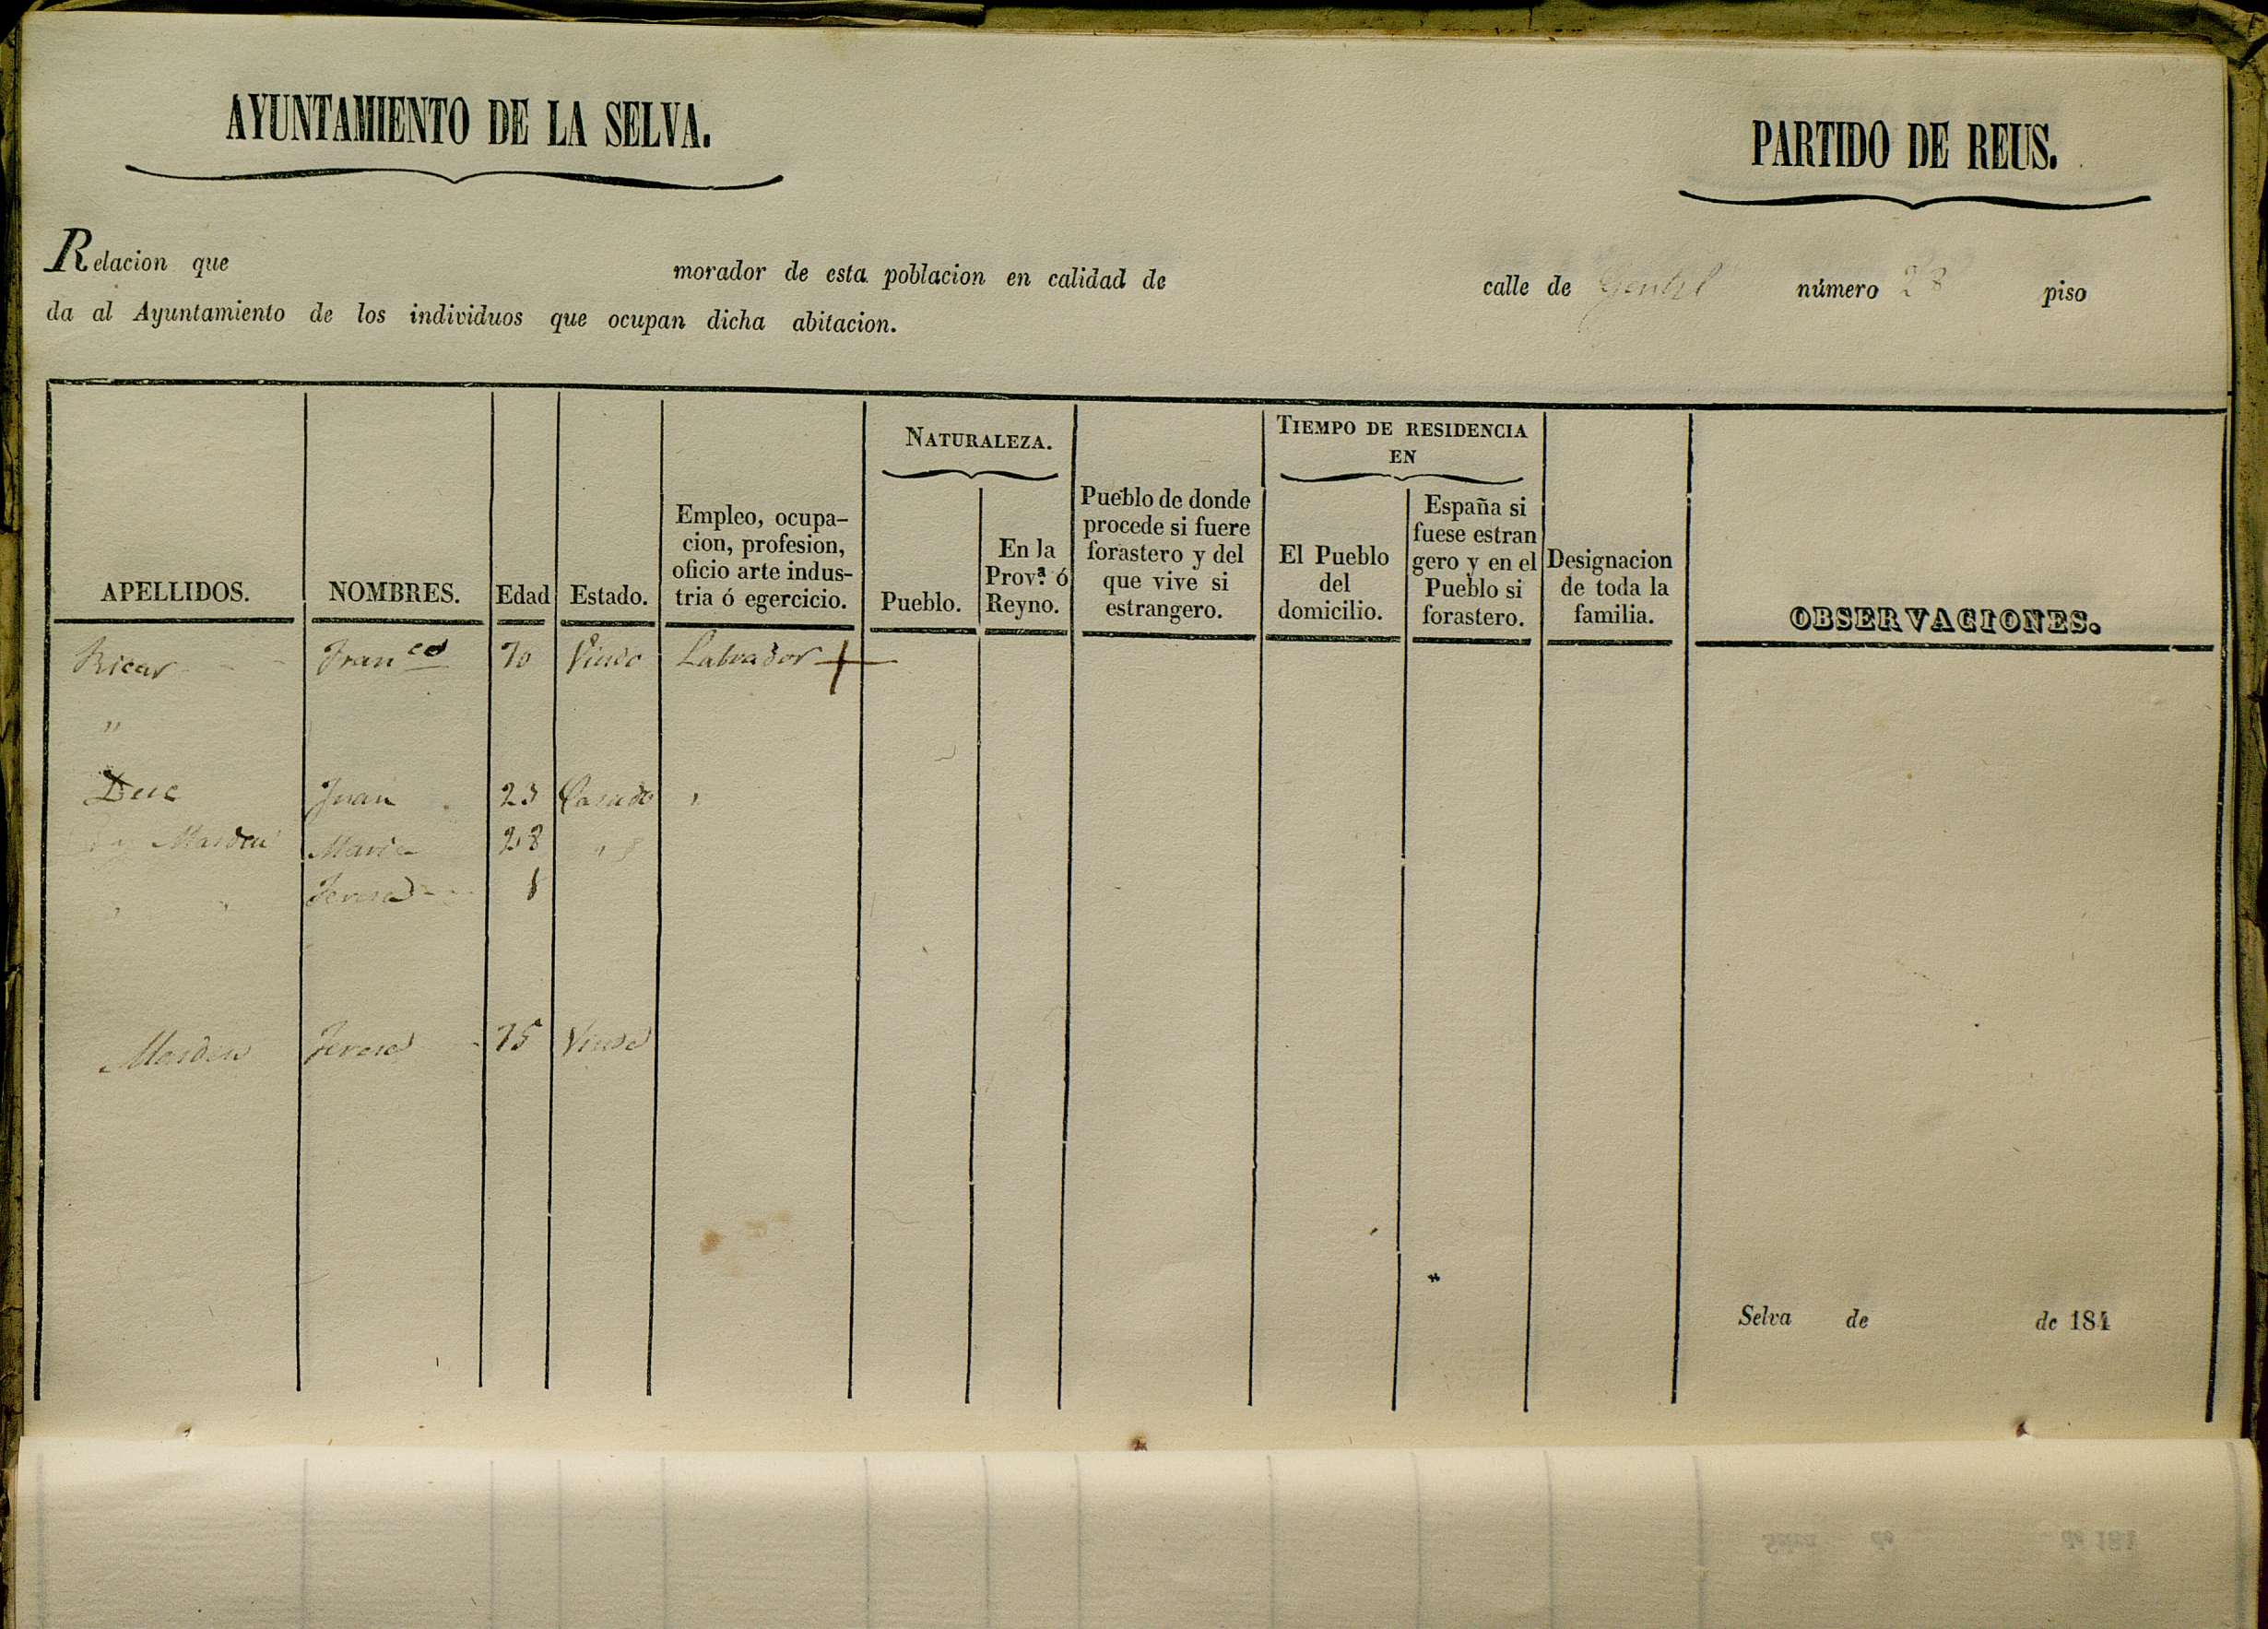 AYUNTAMIENTO DE LA SELVA.
PARTIDO DE REUS.
Relacion que morador de esta poblacion en calidad de calle de Gentil número 28 piso
da al Ayuntamiento de los individuos que ocupan dicha abitacion.
APELLIDOS. NOMBRES. Edad Estado. Empleo, ocupa-
cion, profesion,
oficio arte indus-
tria ó egercicio.
NATURALEZA.
Pueblo.
En la
Prov.ª ó
Reyno.
Pueblo de donde
procede si fuere
forastero y del
que vive si
estrangero.
TIEMPO DE RESIDENCIA
EN
El Pueblo
del
domicilio.
España si
fuese estran
gero y en el
Pueblo si
forastero.
Designacion
de toda la
familia.
OBSERVACIONES.
Ricar Franco 70 Viudo Labrador
"
Duc Juan 23 Casado "
y Masdeu Maria 28 "
" " Teresa 1
Masdeu Teresa 75 Viuda
Selva de de 184